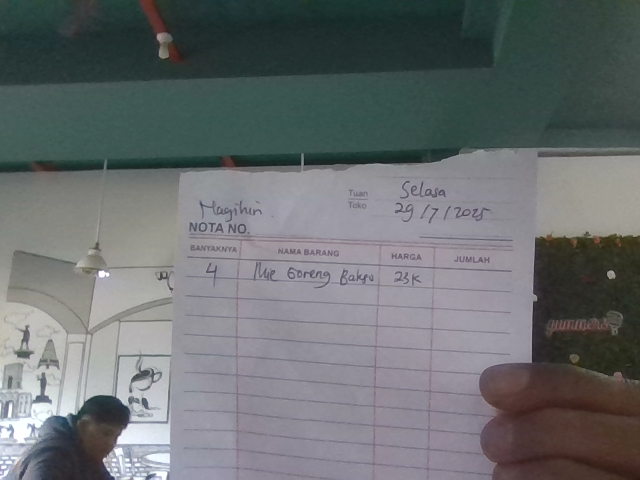 Tuan Selasa
Toko 29/7/2025
Magihin
NOTA NO.
BANYAKNYA NAMA BARANG HARGA JUMLAH
4 Mie Goreng Bakso 23K